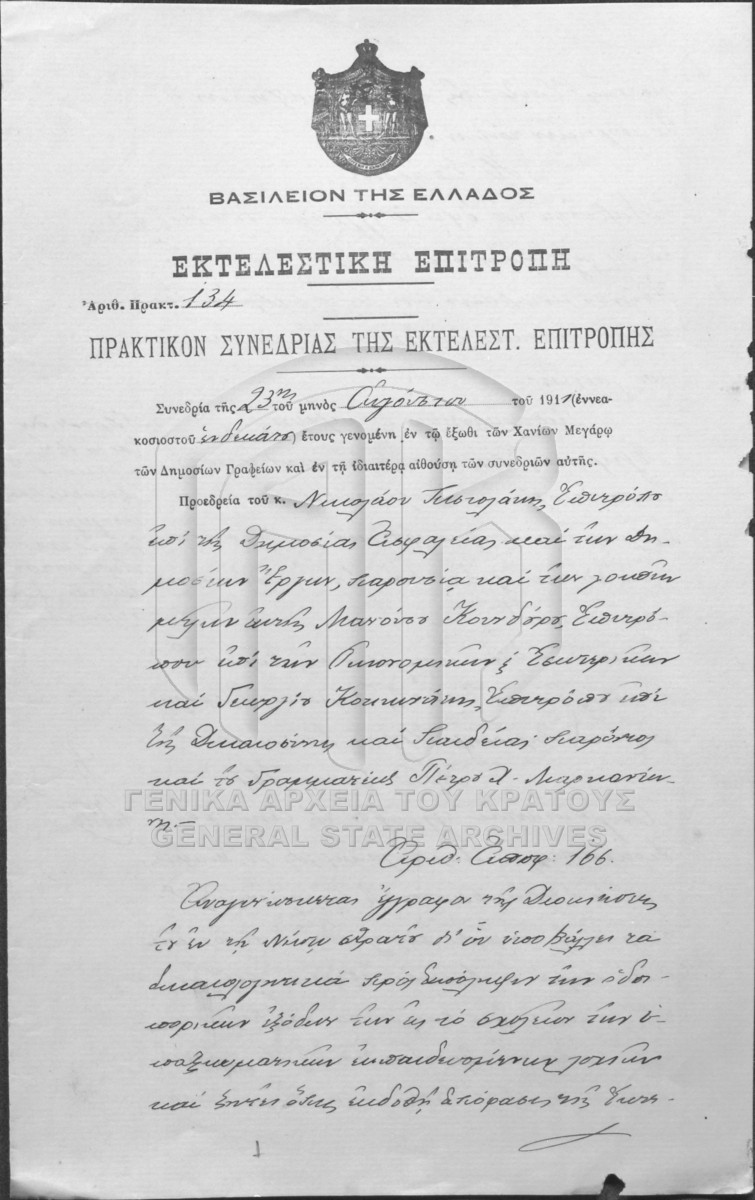 ΒΑΣΙΛΕΙΟΝ ΤΗΣ ΕΛΛΑΔΟΣ
ΕΚΤΕΛΕΣΤΙΚΗ ΕΠΙΤΡΟΠΗ
Ἀριθ. Πρακτ. 134
ΠΡΑΚΤΙΚΟΝ ΣΥΝΕΔΡΙΑΣ ΤΗΣ ΕΚΤΕΛΕΣΤ. ΕΠΙΤΡΟΠΗΣ
Συνεδρία τῆς 23ης τοῦ μηνὸς Αὐγούστου τοῦ 1911 (ἐννεα-
κοσιοστοῦ ἑνδεκάτου) ἔτους γενομένη ἐν τῷ ἔξωθι τῶν Χανίων Μεγάρῳ
τῶν Δημοσίων Γραφείων καὶ ἐν τῇ ἰδιαιτέρᾳ αἰθούσῃ τῶν συνεδριῶν αὐτῆς.
Προεδρεία τοῦ κ. Νικολάου Πιστολάκη, Ἐπιτρόπου
ἐπὶ τῆς Δημοσίας Ἀσφαλείας καὶ τῶν Δη-
μοσίων Ἔργων, παρουσίᾳ καὶ τῶν λοιπῶν
μελῶν αὐτῆς Μανούσου Κουνδούρου, Ἐπιτρό-
που ἐπὶ τῶν Οἰκονομικῶν & Ἐσωτερικῶν
καὶ Γεωργίου Ἐπιτρόπου ἐπὶ
τῆς Δικαιοσύνης καὶ Παιδείας παρόντος
καὶ τοῦ Γραμματέως Πέτρου Μαρκαντών-
η.—
ΓΕΝΙΚΑ ΑΡΧΕΙΑ ΤΟΥ ΚΡΑΤΟΥΣ
GENERAL STATE ARCHIVES
Ἀριθ. Ἀποφ. 166.
Ἀναγινώσκεται ἔγγραφον τῆς Διοικήσεως
τοῦ ἐν τῇ Νήσῳ στρατοῦ δι' οὗ ὑποβάλλει τὰ
δικαιολογητικὰ πρὸς τῶν ὁδοι-
πορικῶν ἐξόδων τῶν εἰς τὸ σχολεῖον τῶν ὑ-
παξιωματικῶν ἐκπαιδευομένων λοχιῶν
καὶ ζητεῖ ὅπως ἐκδοθῇ ἀπόφασις τῆς